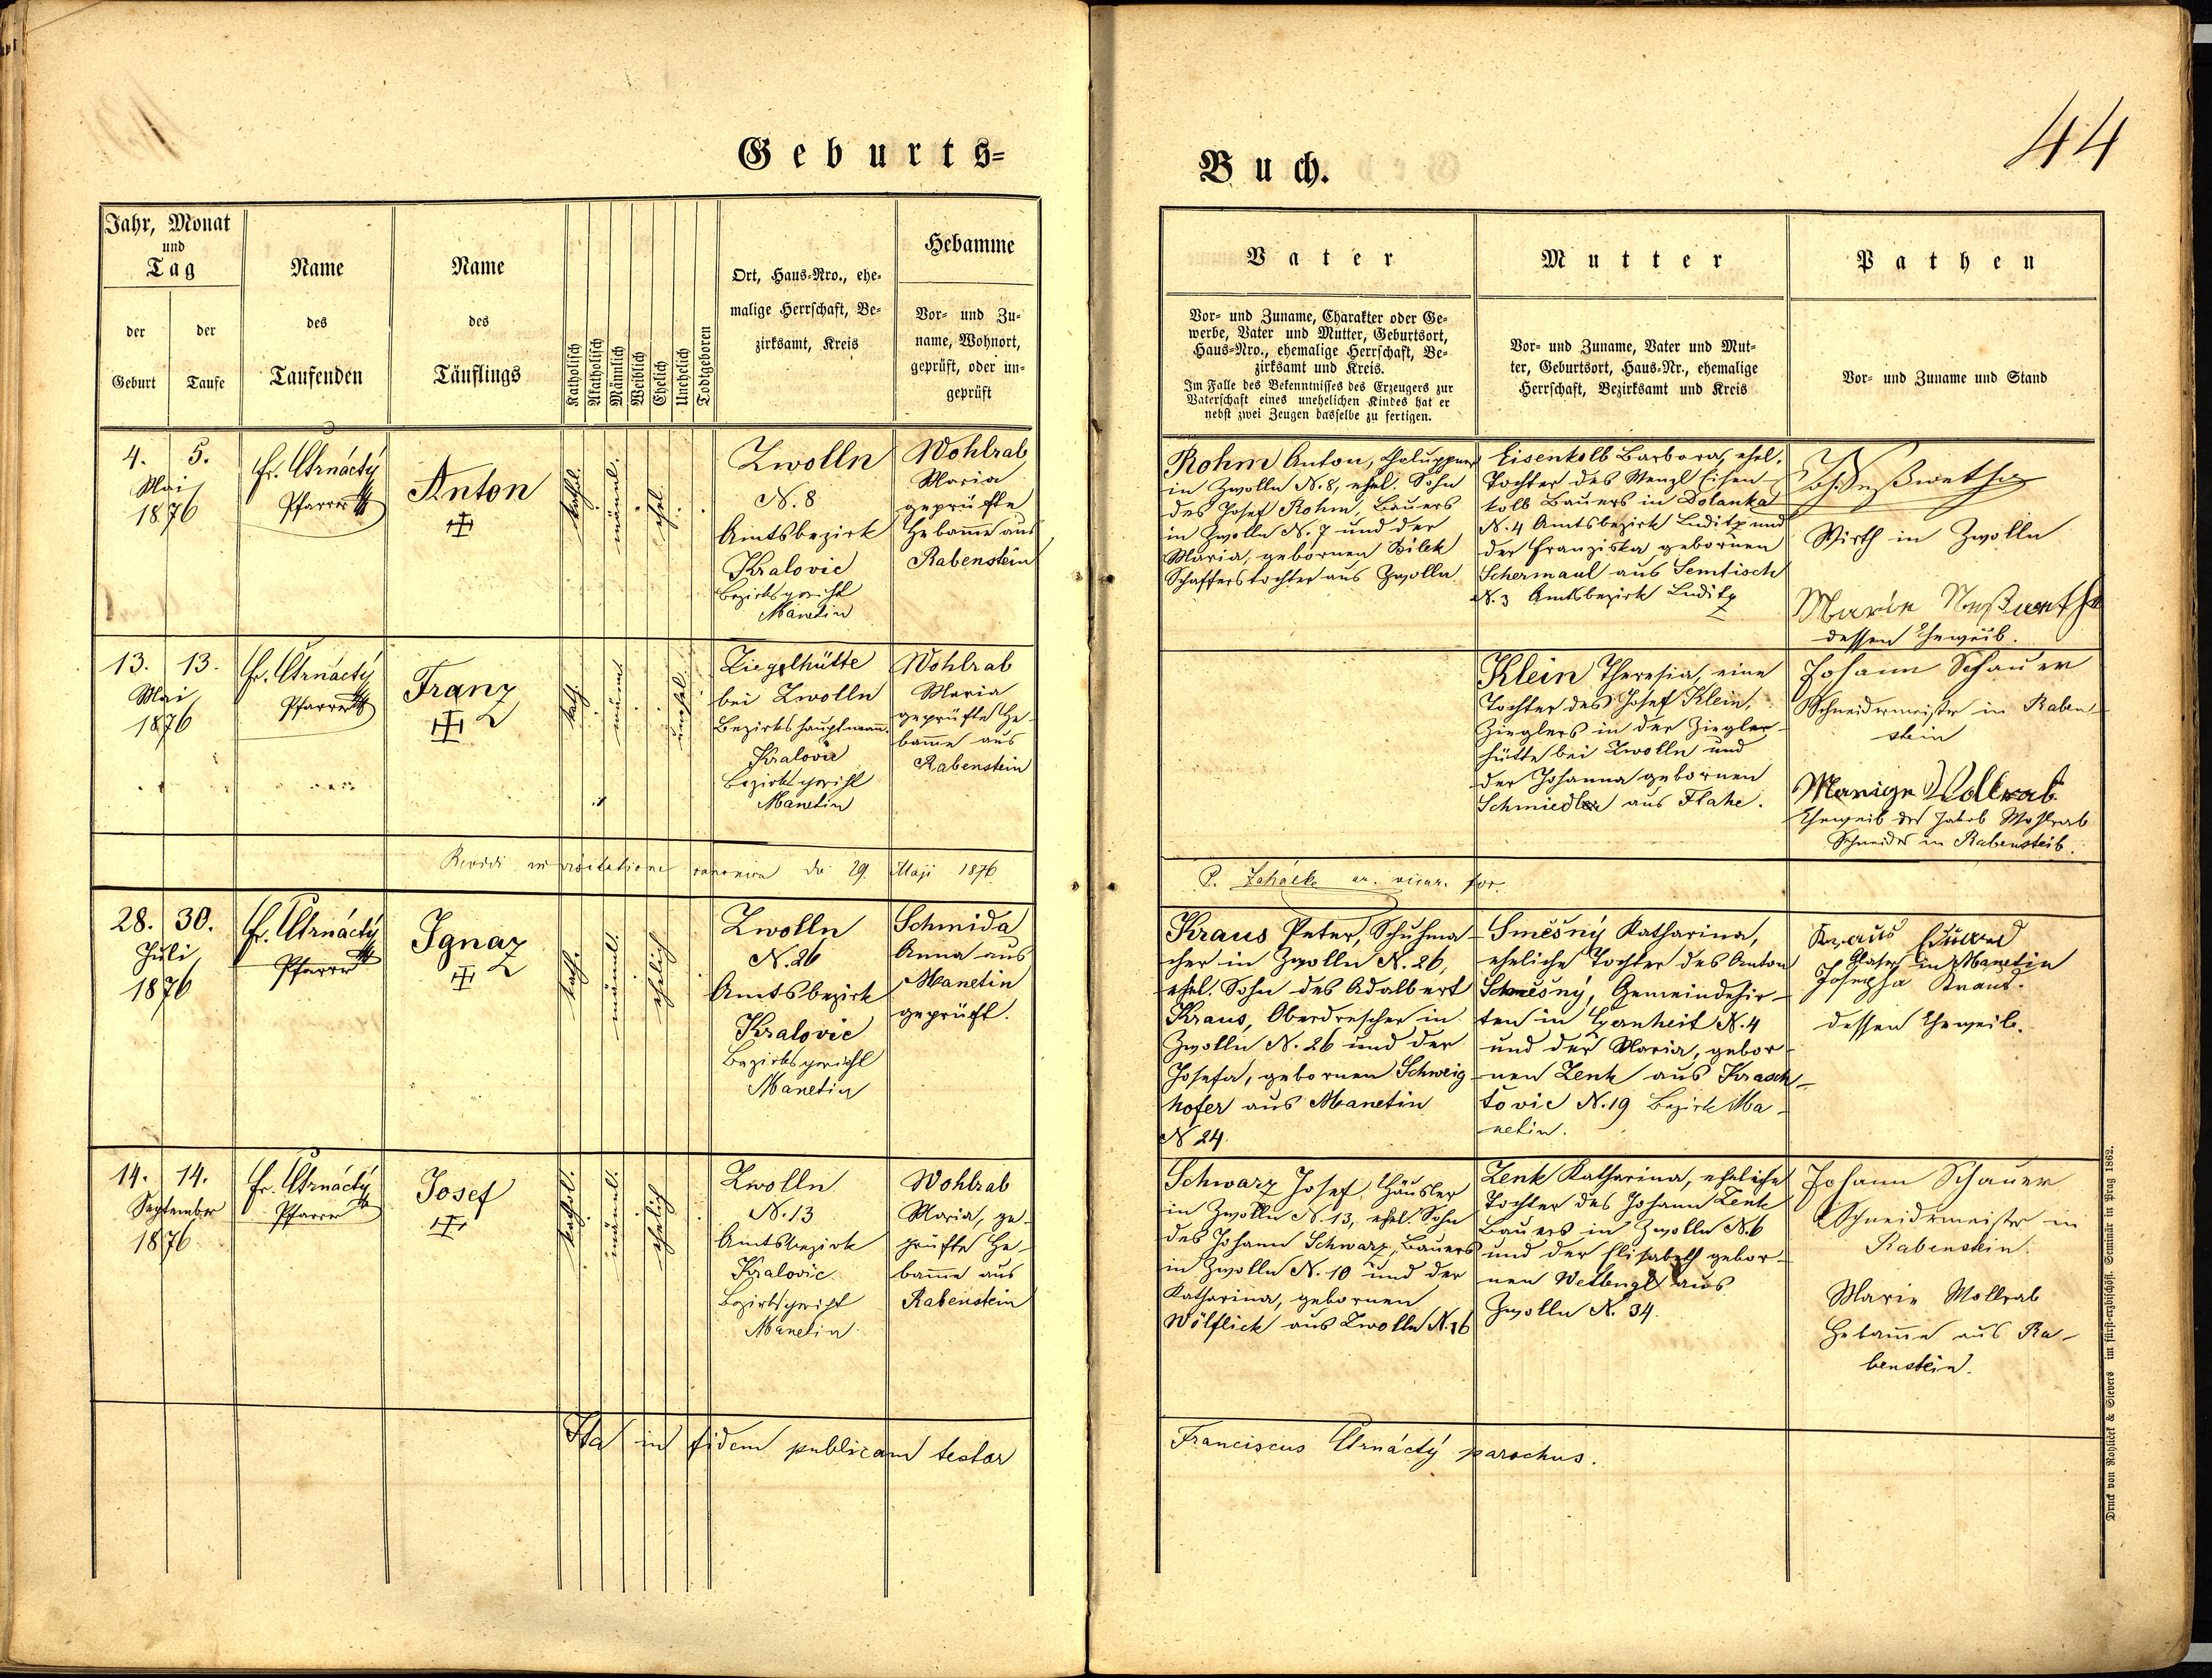 Geburts=
Jahr, Monat
und
Tag
der
Geburt
der
Taufe
Name
des
Taufenden
Name
des
Täuflings
Katholisch
Akatholisch
Männlich
Weiblich
Ehelich
Unehelich
Todtgeboren
Ort, Haus-Nro., ehe-
malige Herrschaft, Be-
zirksamt, Kreis
Hebamme
Vor- und Zu-
name, Wohnort,
geprüft, oder un-
geprüft
4. 5.
Mai
1876
Fr. Ctrnáctý
Pfarrer
Anton
kathol.
männl.
ehel.
Zwolln
N. 8
Amtsbezirk
Kralovic
Bezirksgericht
Manetin
Wohlrab
Maria
geprüfte
Hebamme aus
Rabenstein
13. 13.
Mai
1876
Fr. Ctrnáctý
Pfarrer
Franz
kath.
männl.
unehel.
Ziegelhütte
bei Zwolln
Bezirkshauptmann.
Kralovic
Bezirksgericht
Manetin
Wohlrab
Maria
geprüfte He-
bamme aus
Rabenstein
Revidi in visitatione canonica die 29. Maji 1876
28. 30.
Juli
1876
Fr. Ctrnáctý
Pfarrer
Ignaz
kath.
männl.
ehelich
Zwolln
N. 26
Amtsbezirk
Kralovic
Bezirksgericht
Manetin
Schmida
Anna aus
Manetin
geprüft.
14. 14.
September
1876
Fr. Ctrnáctý
Pfarrer
Josef
kathol.
männl.
ehelich
Zwolln
N. 13
Amtsbezirk
Kralovic
Bezirksgericht
Manetin
Wohlrab
Maria, ge-
prüfte He-
bamme aus
Rabenstein
Ita in fidem publicam testor
Buch.
44
Vater
Vor- und Zuname, Charakter oder Ge-
werbe, Vater und Mutter, Geburtsort,
Haus-Nro., ehemalige Herrschaft, Be-
zirksamt und Kreis.
Im Falle des Bekenntnisses des Erzeugers zur
Vaterschaft eines unehelichen Kindes hat er
nebst zwei Zeugen dasselbe zu fertigen.
Mutter
Vor- und Zuname, Vater und Mut-
ter, Geburtsort, Haus-Nr., ehemalige
Herrschaft, Bezirksamt und Kreis
Pathen
Vor- und Zuname und Stand
Rohm Anton, Chaluppner
in Zwolln N. 8, ehel. Sohn
des Josef Rohm, Bauers
in Zwolln N. 7 und der
Maria, gebornen Bilek
Schafferstochter aus Zwolln
Eisenkolb Barbara, ehel.
Tochter des Wenzl Eisen-
kolb Bauers in Dolanka
N. 4 Amtsbezirk Luditz und
der Franziska gebornen
Schermaul aus Semtisch
N. 3 Amtsbezirk Luditz
Wirth in Zwolln
Marie
dessen Eheweib.
Klein Theresia, eine
Tochter des Josef Klein,
Zieglers in der Ziegler-
hütte bei Zwolln und
der Johanna gebornen
Schmiedl aus Flahe.
Johann Schauer
Schneidermeister in Raben-
stein
Wollrab
Eheweib des Jakob Wohlrab
Schneider in Rabenstein.
P. Zahálka vicar. for.
Kraus Peter, Schuhma-
cher in Zwolln N. 26,
ehel. Sohn des Adalbert
Kraus, Oberdrescher in
Zwolln N. 26 und der
Josefa, gebornen Schweig-
hofer aus Manetin
N 24.
Směšný Katharina,
eheliche Tochter des Anton
Směšný, Gemeindehir-
ten in N. 4
und der Maria, gebor-
nen Zenk aus Krasch-
tovic N. 19 Bezirk Ma-
netin.
Kraus Eduard
Glaser in Manetin
Josepha Kraus
dessen Eheweib.
Schwarz Josef, Häusler
in Zwolln N. 13, ehel. Sohn
des Johann Schwarz, Bauers
in Zwolln N. 10 und der
Katharina, gebornen
Wölflick aus Zwolln N. 16
Zenk Katharina, eheliche
Tochter des Johann Zenk
Bauers in Zwolln N. 6
und der Elisabeth gebor-
nen Welbngl aus
Zwolln N. 34.
Johann Schauer
Schneidermeister in
Rabenstein.
Marie Wollrab
Hebamme aus Ra-
benstein.
Franciscus Ctrnáctý parochus.
Druck von Rohliček & Sievers im fürst-erzbischöfl. Seminär in Prag 1862.